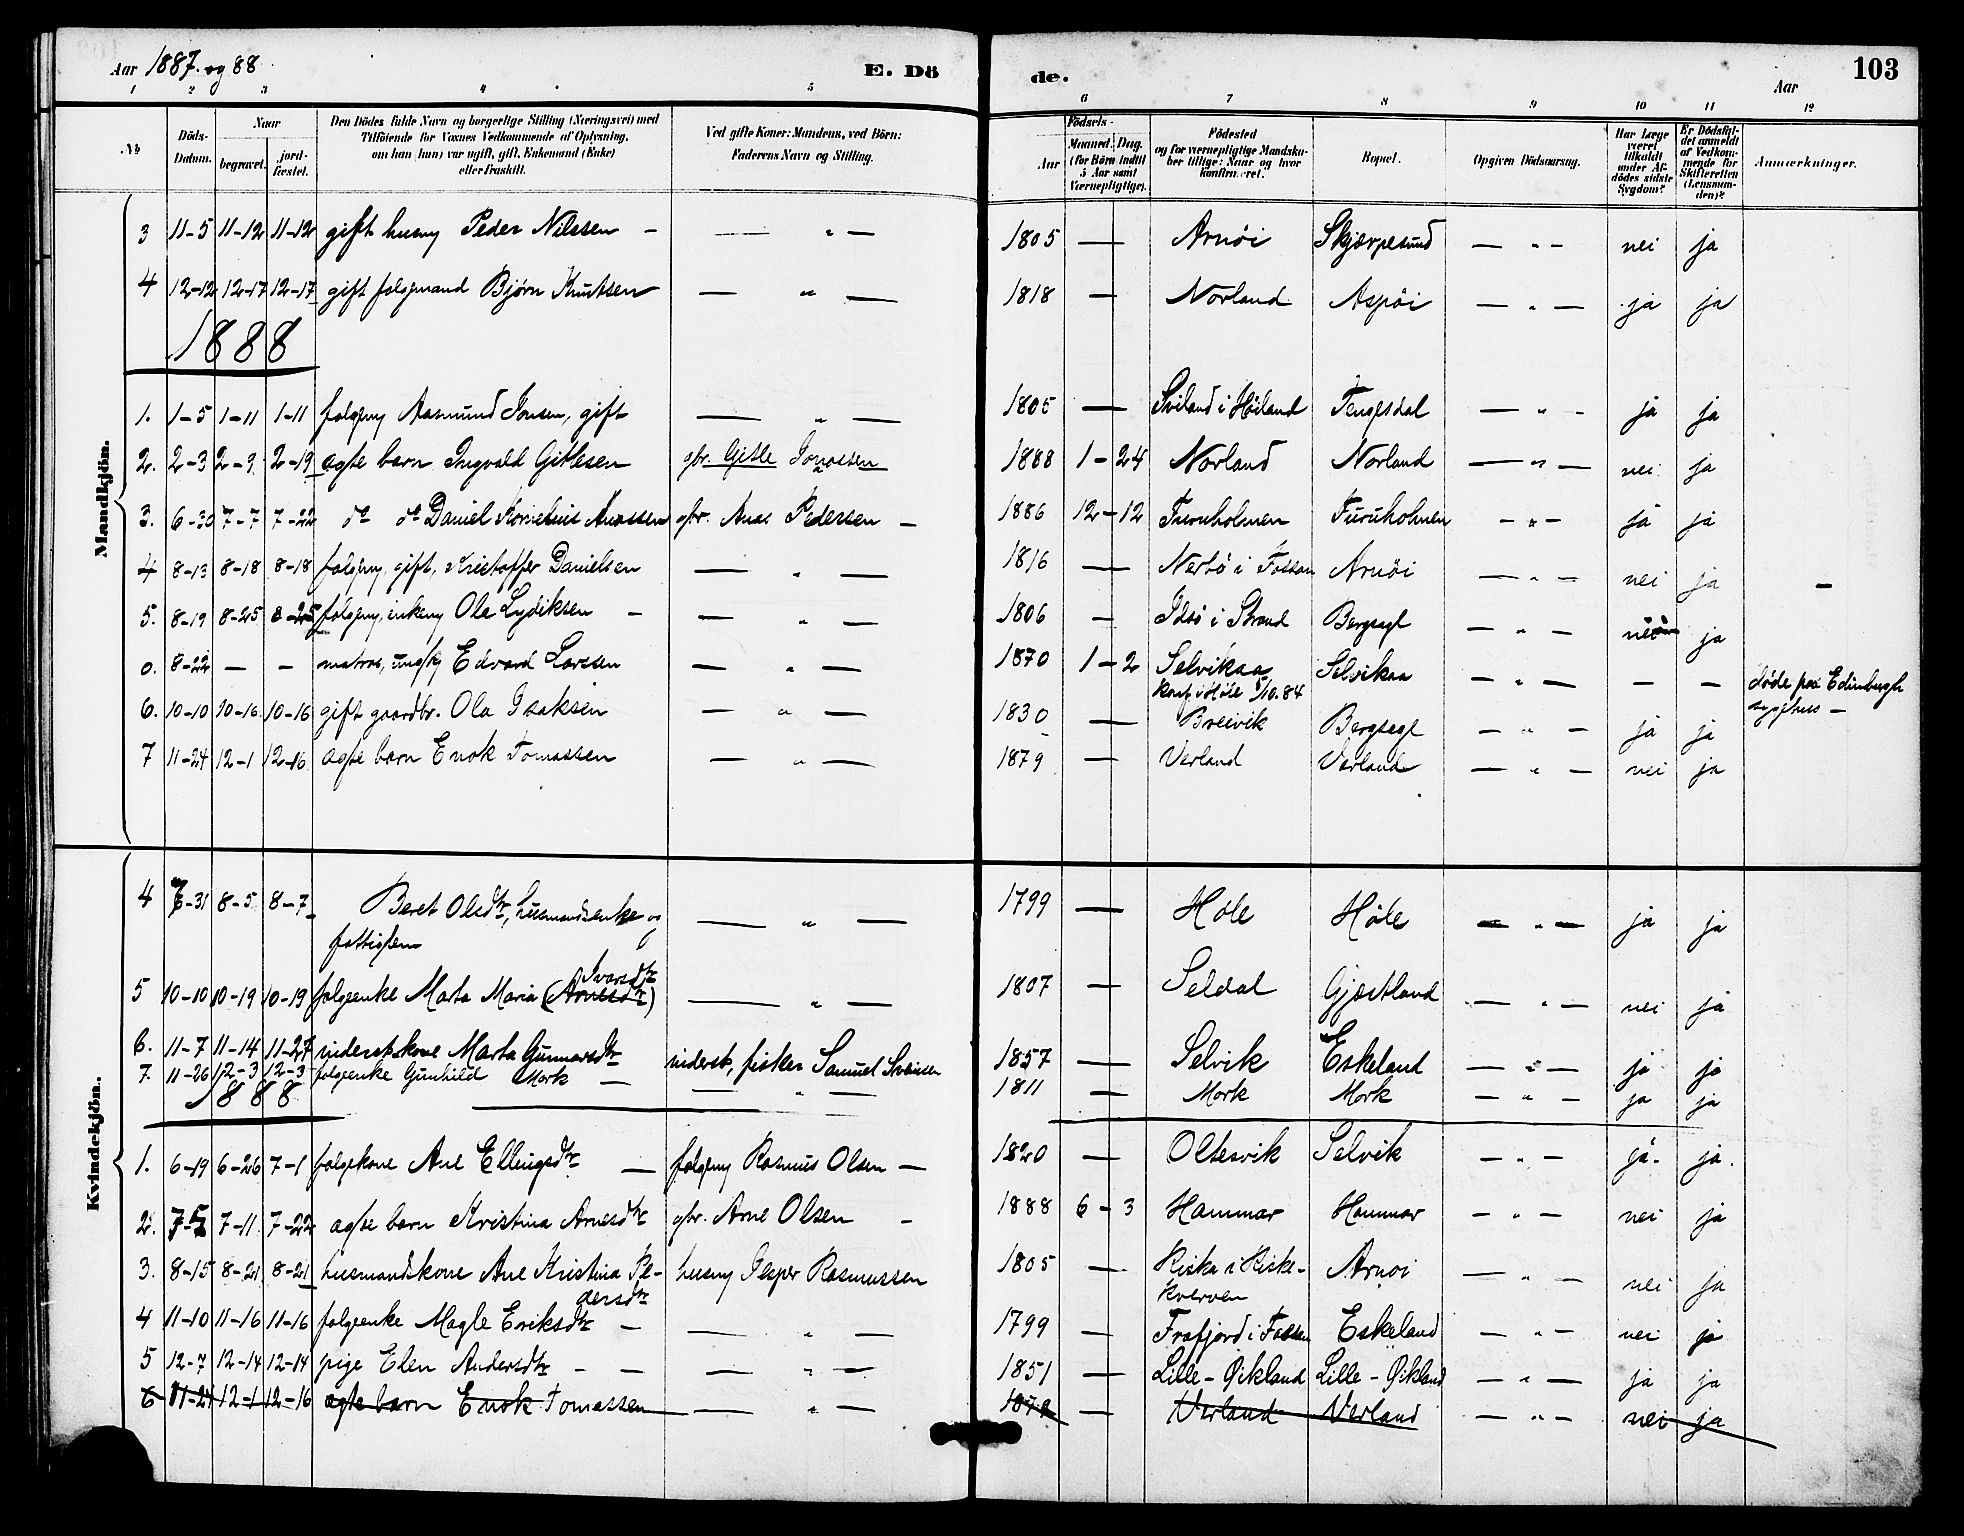 Aar 1887. og 88 E. Dö de. Aar 103
1 2 3 4 5 6 7 8 9 10 11 12
No Döds-Datum. Naar begravet. jord-fæstet. Den Dödes fulde Navn og borgerlige Stilling (Næringsvei) med Tilföiende for Voxnes Vedkommende af Oplysning, om han (hun) var ugift, gift, Enkemand (Enke) eller fraskilt. Ved gifte Koner: Mandens, ved Börn: Faderens Navn og Stilling. Födsels- Aar Maaned. Dag. (for Börn indtil 5 Aar samt Værnepligtige). Födested og for værnepligtige Mandskaber tillige: Naar og hvor konfirmeret. Bopæl. Opgiven Dödsaarsag. Har Læge været tilkaldt under Afdödes sidste Sygdom? Er Dödsfaldet anmeldt af Vedkommende for Skifteretten (Lensmanden)? Anmærkninger.
Mandkjön.
3 11-5 11-12 11-12 gift husmd Peder Nilssen — — „ — 1805 — Arnöi Skjørpesund — „ — nei ja
4 12-12 12-17 12-17 gift folgemand Bjørn Knutsen — „ — 1818 — Norland Aspöi — „ — ja ja
1888
1. 1-5 1-11 1-11 folgemd Aasmund Jonsen, gift — „ — 1805 — Sviland i Höiland Tengesdal — „ — ja ja
2. 2-3 2-9 2-19 ægte barn Ingvald Gitlesen gbr. Gitle Jonassen 1888 1-24 Norland Norland — „ — nei ja
3. 6-30 7-7 7-22 do do Daniel Kornelius Anassen gbr. Anas Pedersen — 1886 12-12 Furuholmen Furuholmen — „ — ja ja
4 8-13 8-18 8-18 folgemd, gift, Kristoffer Danielsen — „ — 1816 — Nertö i Fossan Arnöi — „ — nei ja —
5. 8-19 8-25 8-25 folgemd, enkemd Ole Lydiksen — — „ — 1806 — Idsö i Strand Bergsagl — „ — nei ja
0. 8-22 — — matros, ungk Edvard Larsen — „ — 1870 1-2 Selvikaa Selvikaa — „ — — — døde paa Edinburgh
konf i Höle 5/10.84 sygehus —
6. 10-10 10-16 10-16 gift gaardbr. Ola Isaksen — „ — 1830 — Breivik Bergsagl — „ — ja ja
7 11-24 12-1 12-16 ægte barn Enok Tomassen — „ — 1879 — Verland Verland — „ — nei ja
Kvindekjön.
4 7-31 8-5 8-7 Beret Olsdtr, husmandsenke og — „ — 1799 — Høle Høle — „ — ja ja
fattiglem
Ivarsdtr
5 10-10 10-19 10-19 folgeenke Marta Maria (Arnesdtr) — „ — 1807 — Seldal Gjøstland — „ — nei ja
6. 11-7 11-14 11-27 inderstkone Marta Gunnarsdtr inderst, fisker Samuel Sveinsen 1857 — Selvik Eskeland — „ — ja ja
7. 11-26 12-3 12-3 folgeenke Gunhild Mork — — „ — 1811 — Mork Mork — „ — ja ja
1888
1. 6-19 6-26 7-1 folgekone Ane Ellingsdtr — folgemd Rasmus Olsen — 1820 — Oltesvik Selvik — „ — ja. ja.
2. 7-5 7-11 7-22 ægte barn Kristina Arnesdtr gbr. Arne Olsen — 1888 6-3 Hammar Hammar — „ — nei ja
3. 8-15 8-21 8-21 husmandskone Ane Kristina Pe- husmd Jesper Rasmussen 1805 — Riska i Riske- Arnöi — „ — nei ja
dersdtr kverven
4 11-10 11-16 11-16 folgeenke Magle Eriksdtr — — „ — 1799 — Frafjord i Fossan Eskeland — „ — nei ja
5 12-7 12-14 12-14 pige Elen Andersdtr — — — „ — 1851 — Lille-Øikland Lille-Øikland — „ — ja ja
6 11-24 12-1 12-16 ægte barn Enok Tomassen — „ — 1879 — Verland Verland — „ — nei ja